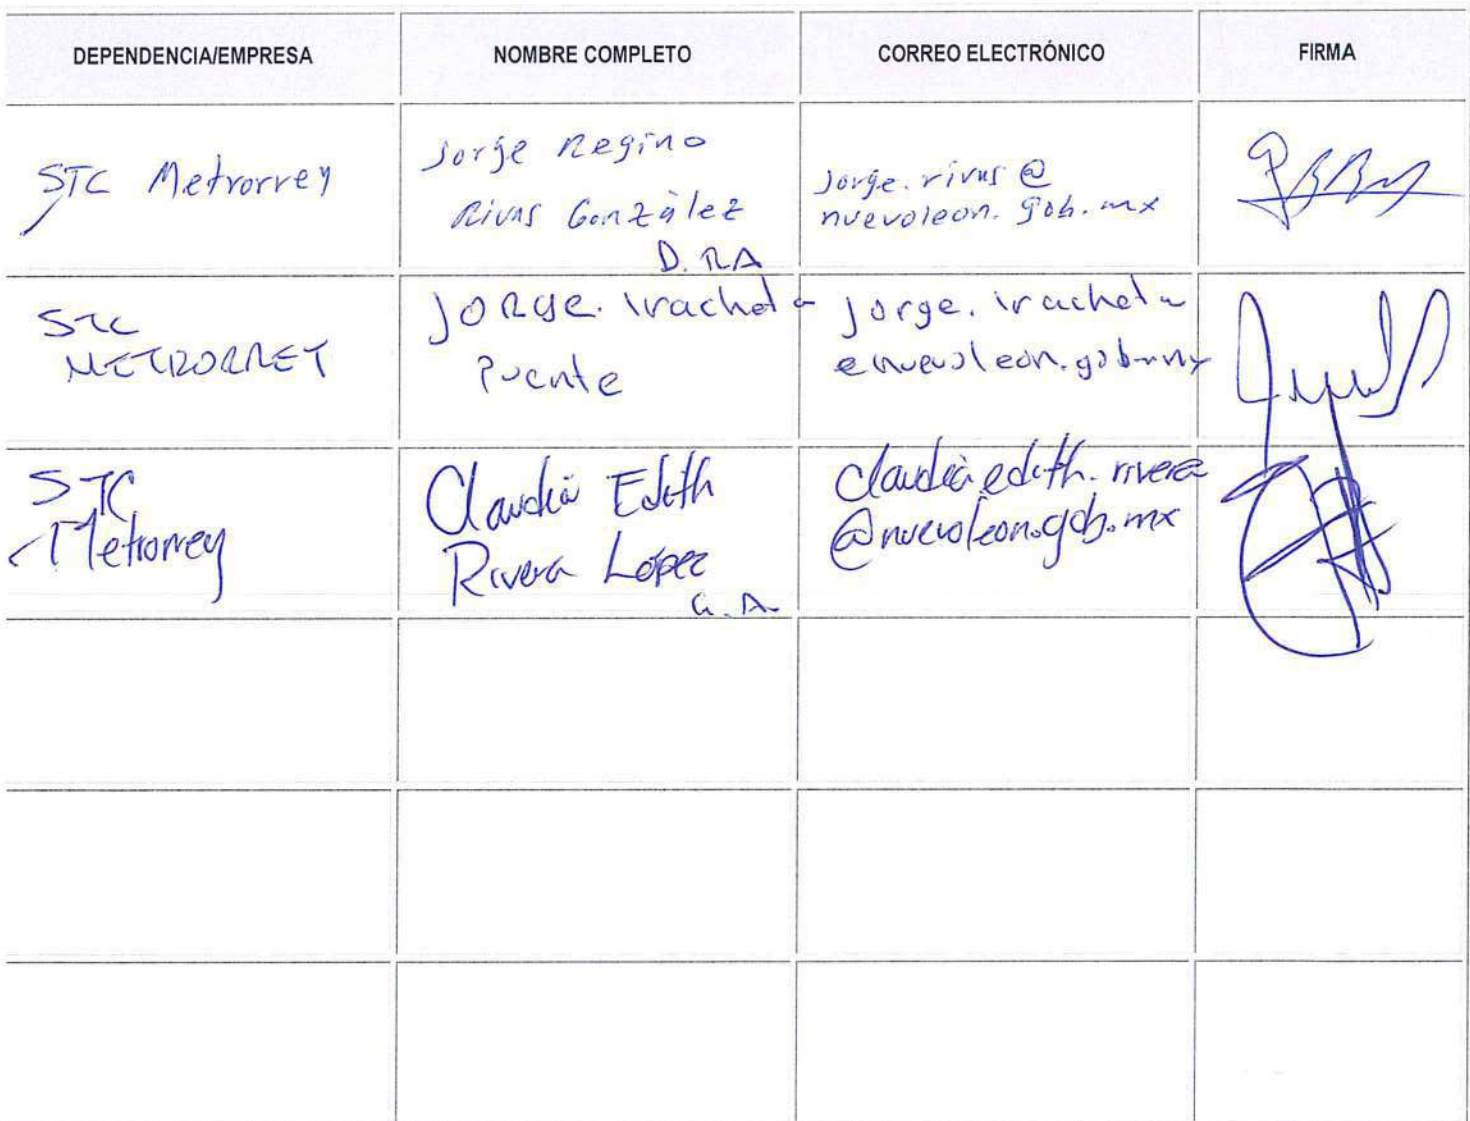 DEPENDENCIA/EMPRESA NOMBRE COMPLETO CORREO ELECTRÓNICO FIRMA
STC Metrorrey
Jorge Regino
Rivas González
D. RA
Jorge.rivas@
nuevoleon.gob.mx
STC
METRORREY
Jorge. Iracheta
Puente
jorge.iracheta
@nuevoleon.gob.mx
STC
Metrorrey
Claudia Edith
Rivera López
G.A.
claudia.edith.rivera
@nuevoleon.gob.mx